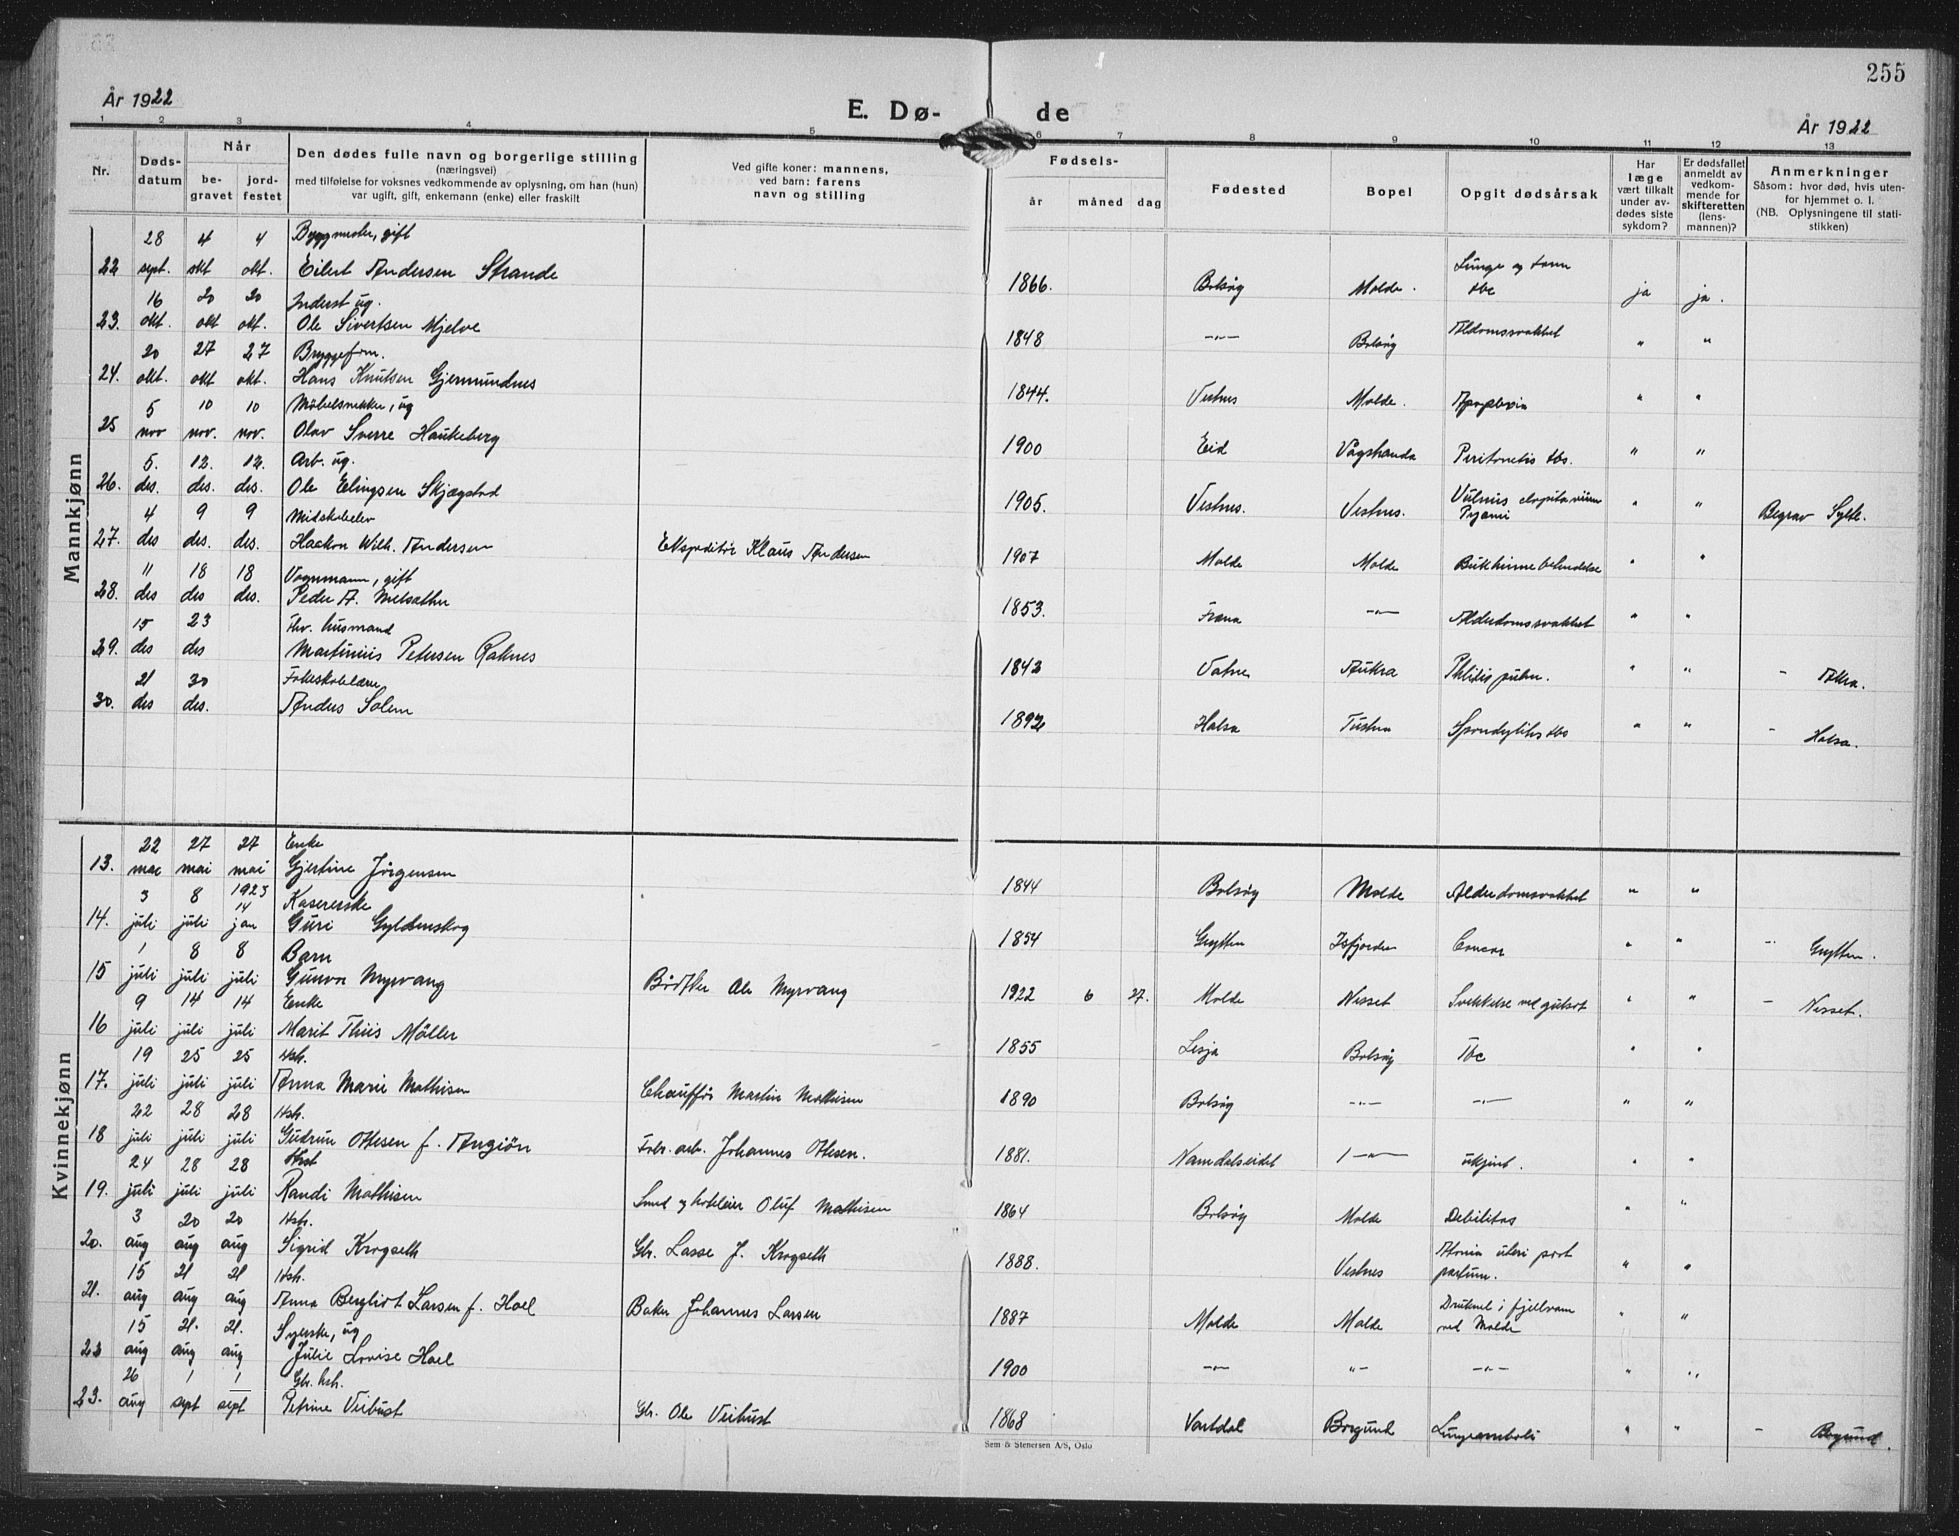 255
År 1922
E. Dø-
de
År 1922
1 2 3 4 5 6 7 8 9 10 11 12 13
Nr.
Døds-
datum
Når
be-
gravet
jord-
festet
Den dødes fulle navn og borgerlige stilling
(næringsvei)
med tilføielse for voksnes vedkommende av oplysning, om han (hun)
var ugift, gift, enkemann (enke) eller fraskilt
Ved gifte koner: mannens,
ved barn: farens
navn og stilling
Fødsels-
år måned dag
Fødested
Bopel
Opgit dødsårsak
Har
læge
vært tilkalt
under av-
dødes siste
sykdom?
Er dødsfallet
anmeldt av
vedkom-
mende for
skifteretten
(lens-
mannen)?
Anmerkninger
Såsom: hvor død, hvis uten-
for hjemmet o. l.
(NB. Oplysningene til stati-
stikken)
Mannkjønn
28 4 4 Byggmester, gift
22 sept. okt okt. Eilert Andersen Strande 1866. Bolsøy Molde. Lunge og tarm tbc ja ja.
16 20 20 Inderst ug.
23. okt. okt okt. Ole Sivertsen Mjelve 1848 -"- Bolsøy " "
20 27 27 Bryggeform.
24. okt. okt okt. Hans Knutsen Gjermundnes 1844. Vestnes Molde. Apoplexia " "
5 10 10 Møbelsnekker, ug
25 nov nov. nov. Olav Sverre Haukeberg 1900 Eid Vågstranda Peritonetis tbs. " "
5. 12. 12. Arb. ug.
26. des. des. des. Ole Elingsen Skjægstad 1905. Vestnes. Vestnes. Vulnus Pyæmi " " Begrav Sylte.
4 9 9 Midskoleelev
27. des des. des. Haakon Wilh. Andersen Ekspeditør Klaus Andersen 1907 Molde Molde Bukhinnebetendelse " "
11 18 18 Vognmann, gift
28. des des des. Peder A. Melsæther 1853. Fræna -"- Alderdomssvakhet " "
15 23 Fhv. husmand
29. des des Martinus Petersen Raknes 1843 Vatne Aukra Phtisis pulm. " " - Akra.
21 30 Folkeskolelærer
30. des des. Anders Solem 1892 Halsa Tustna Spondylitis tbs " " - Halsa.
Kvinnekjønn
22 27 27 Enke
13. mai mai mai Gjertine Jørgensen 1844 Bolsøy Molde Alderdomssvakhet " "
3 8 1923 14
14. juli juli jan Guri Gyldenskog 1854 Grytten Isfjorden Cancer " " - Grytten.
1 8 8 Barn
15 juli juli juli Gunvor Myrvang Bødtker Ole Myrvang 1922 6 27. Molde Nesset Svekkelse ved gulsot " " - Nesset.
9 14 14 Enke
16 juli juli juli Marit Thiis Möller 1855 Lesja Bolsøy Tbc " "
19 25 25 Hsh.
17. juli juli juli Anna Marie Mathisen Chauffør Martin Mathisen 1890 Bolsøy -"- -"- " "
22 28 28 Hsh.
18 juli juli juli Gudrun Ottesen f. Angiön Fabr. arb. Johannes Ottesen. 1881. Namdalseidet -"- ukjent. " "
24 28 28 Hsh
19. juli juli juli Randi Mathisen Smed og hoteleier Oluf Mathisen 1864 Bolsøy Molde Debilitas " "
3 20 20 Hsh.
20. aug aug aug Sigrid Krogseth Gbr. Lasse J. Krogseth 1888. Vestnes Atonia uteri post partum. " "
15 21 21 Hsh.
21. aug aug aug Anna Bergliot Larsen f. Hoel Baker Johannes Larsen 1887 Molde Molde Druknet i fjellvann ved Molde " "
15 21. 21. Syerske, ug
22 aug aug aug Julie Lovise Hoel 1900 -"- "- -"- " "
26 1 1 Gbr. hsh.
23. aug sept sept Petrine Veibust Gbr. Ole Veibust 1868 Vartdal Borgund Lungeemboli " " - Borgund.
Sem & Stenersen A/S, Oslo